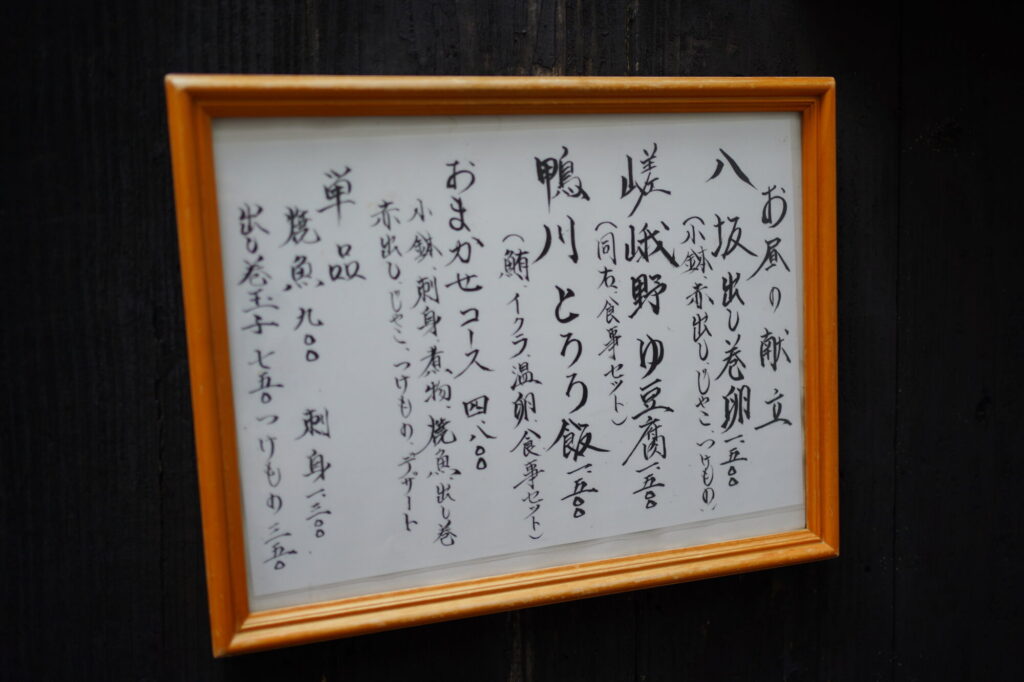 お昼の献立
八坂出し巻卵一、五〇〇
(小鉢、赤出し、じゃこ、つけもの、
嵯峨野ゆ豆腐一、五〇〇
(同右、食事セット)
鴨川とろろ飯一、五〇〇
(鮪、イクラ、温卵、食事セット)
おまかせコース 四、八〇〇
小鉢、刺身、煮物、焼魚、出し巻
赤出し、じゃこ、つけもの、デザート
単品
焼魚 九〇〇 刺身一、三〇〇
出し巻玉子 七五〇 つけもの 三五〇